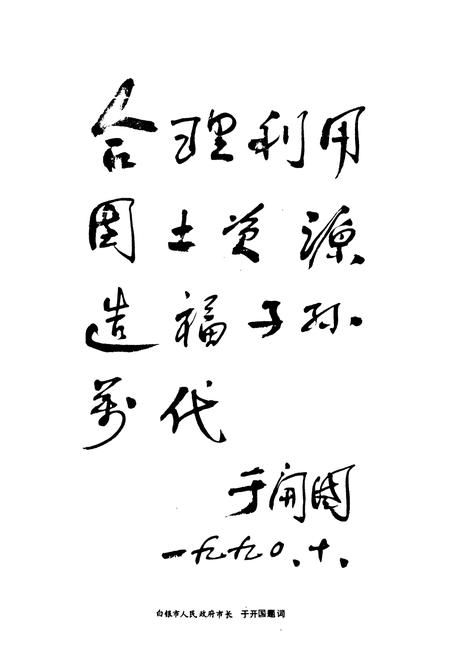 合理利用
国土资源
造福子孙
万代
于开国
一九九〇.十.
白银市人民政府市长 于开国题词